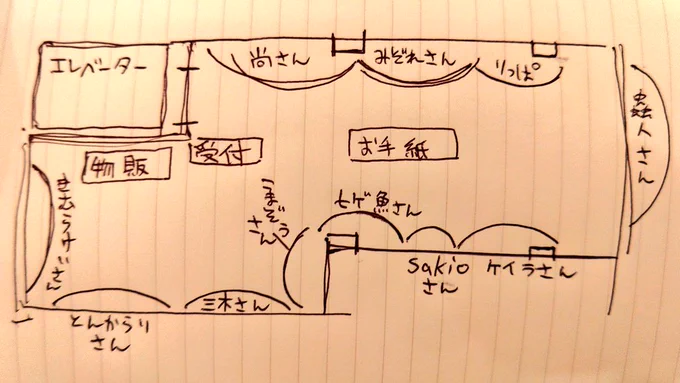 エレベーター
尚さん
みぞれさん
りっぱ
蟲人さん
物販
受付
お手紙
きむらけいさん
うまぞう
さん
七ゲ魚さん
sakio
さん
ケイラさん
とんからり
さん
三木さん